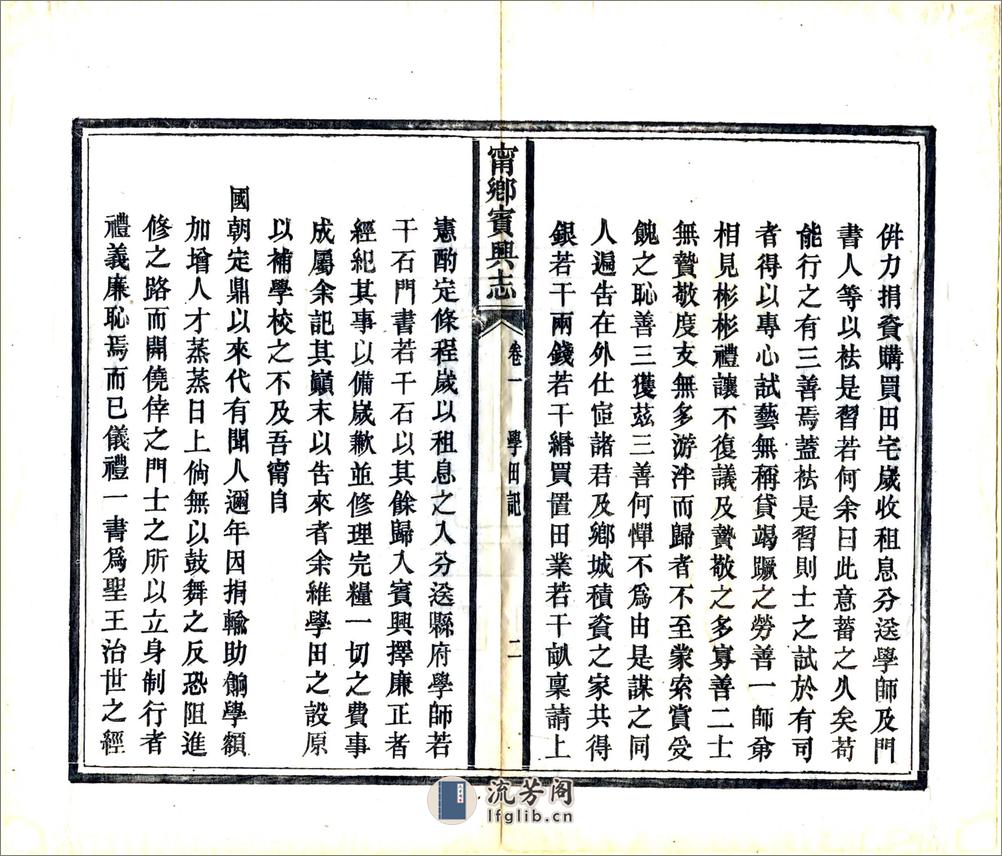 併力捐資購買田宅歲收租息分送學師及門
書人等以袪是習若何余曰此意蓄之久矣苟
能行之有三善焉蓋袪是習則士之試於有司
者得以專心試藝無稱貸竭蹶之勞善一師弟
相見彬彬禮讓不復議及贄敬之多寡善二士
無贄敬度支無多游泮而歸者不至業索賞受
餽之恥善三獲茲三善何憚不爲由是謀之同
人遍告在外仕宦諸君及鄉城積資之家共得
銀若干兩錢若干緡買置田業若干畝稟請上
甯鄉賓興志
卷一 學田記 二
憲酌定條程歲以租息之入分送縣府學師若
干石門書若干石以其餘歸入賓興擇廉正者
經紀其事以備歲歉並修理完糧一切之費事
成屬余記其巔末以告來者余維學田之設原
以補學校之不及吾甯自
國朝定鼎以來代有聞人邇年因捐輸助餉學額
加增人才蒸蒸日上倘無以鼓舞之反恐阻進
修之路而開僥倖之門士之所以立身制行者
禮義廉恥焉而已儀禮一書爲聖王治世之經
流芳阁
lfglib.cn